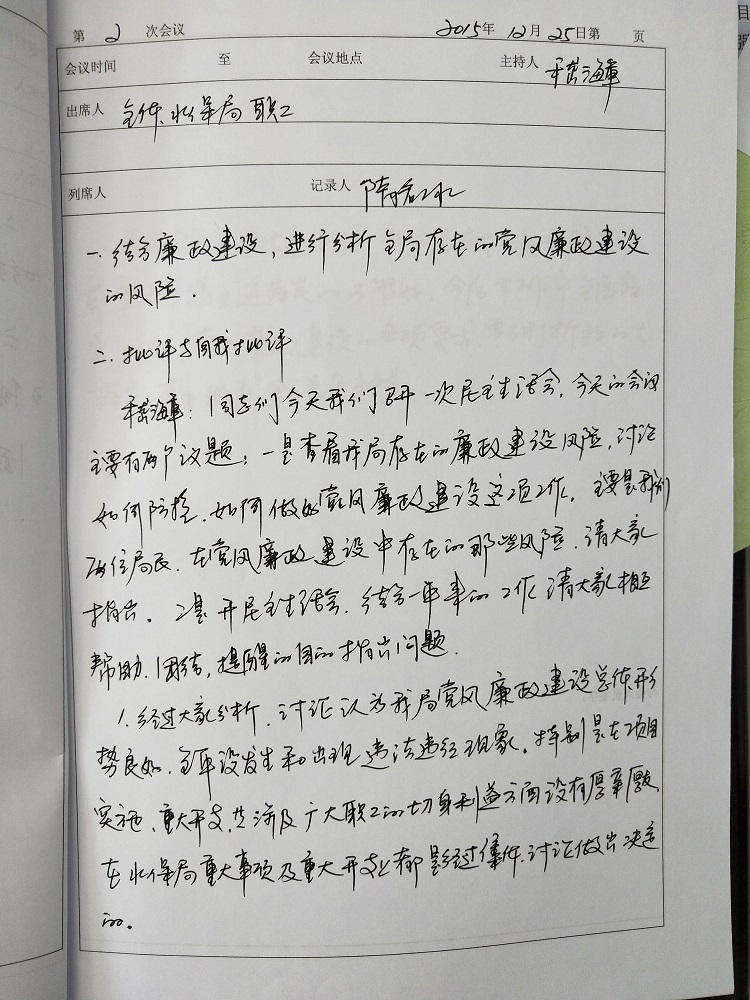 第 2 次会议 2015年 12月 25日第 页
会议时间 至 会议地点 主持人 海军
出席人 全体水保局职工
列席人 记录人
一. 结合廉政建设，进行分析全局存在的党风廉政建设
的风险.
二. 批评与自我批评
海军：同志们今天我们召开一次民主生活会，今天的会议
主要有两个议题：一是查看我局存在的廉政建设风险，讨论
如何防控、如何做好党风廉政建设这项工作，主要是我们
位局长、在党风廉政建设中存在的那些风险，请大家
指出。二是开民主生活会、结合一年来的工作请大家相互
帮助、团结，提醒的目的指出问题.
1. 经过大家分析、讨论认为我局党风廉政建设总体形
势良好、全年没发生和出现违法违纪现象。特别是在项目
实施、重大开支、共涉及广大职工的切身利益方面没有
在水保局重大事项及重大开支上都是经过集体讨论做出决定
的。